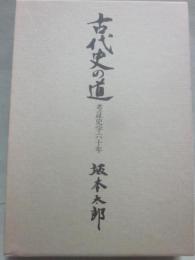 古代史の道
考証史学六十年
坂本太郎